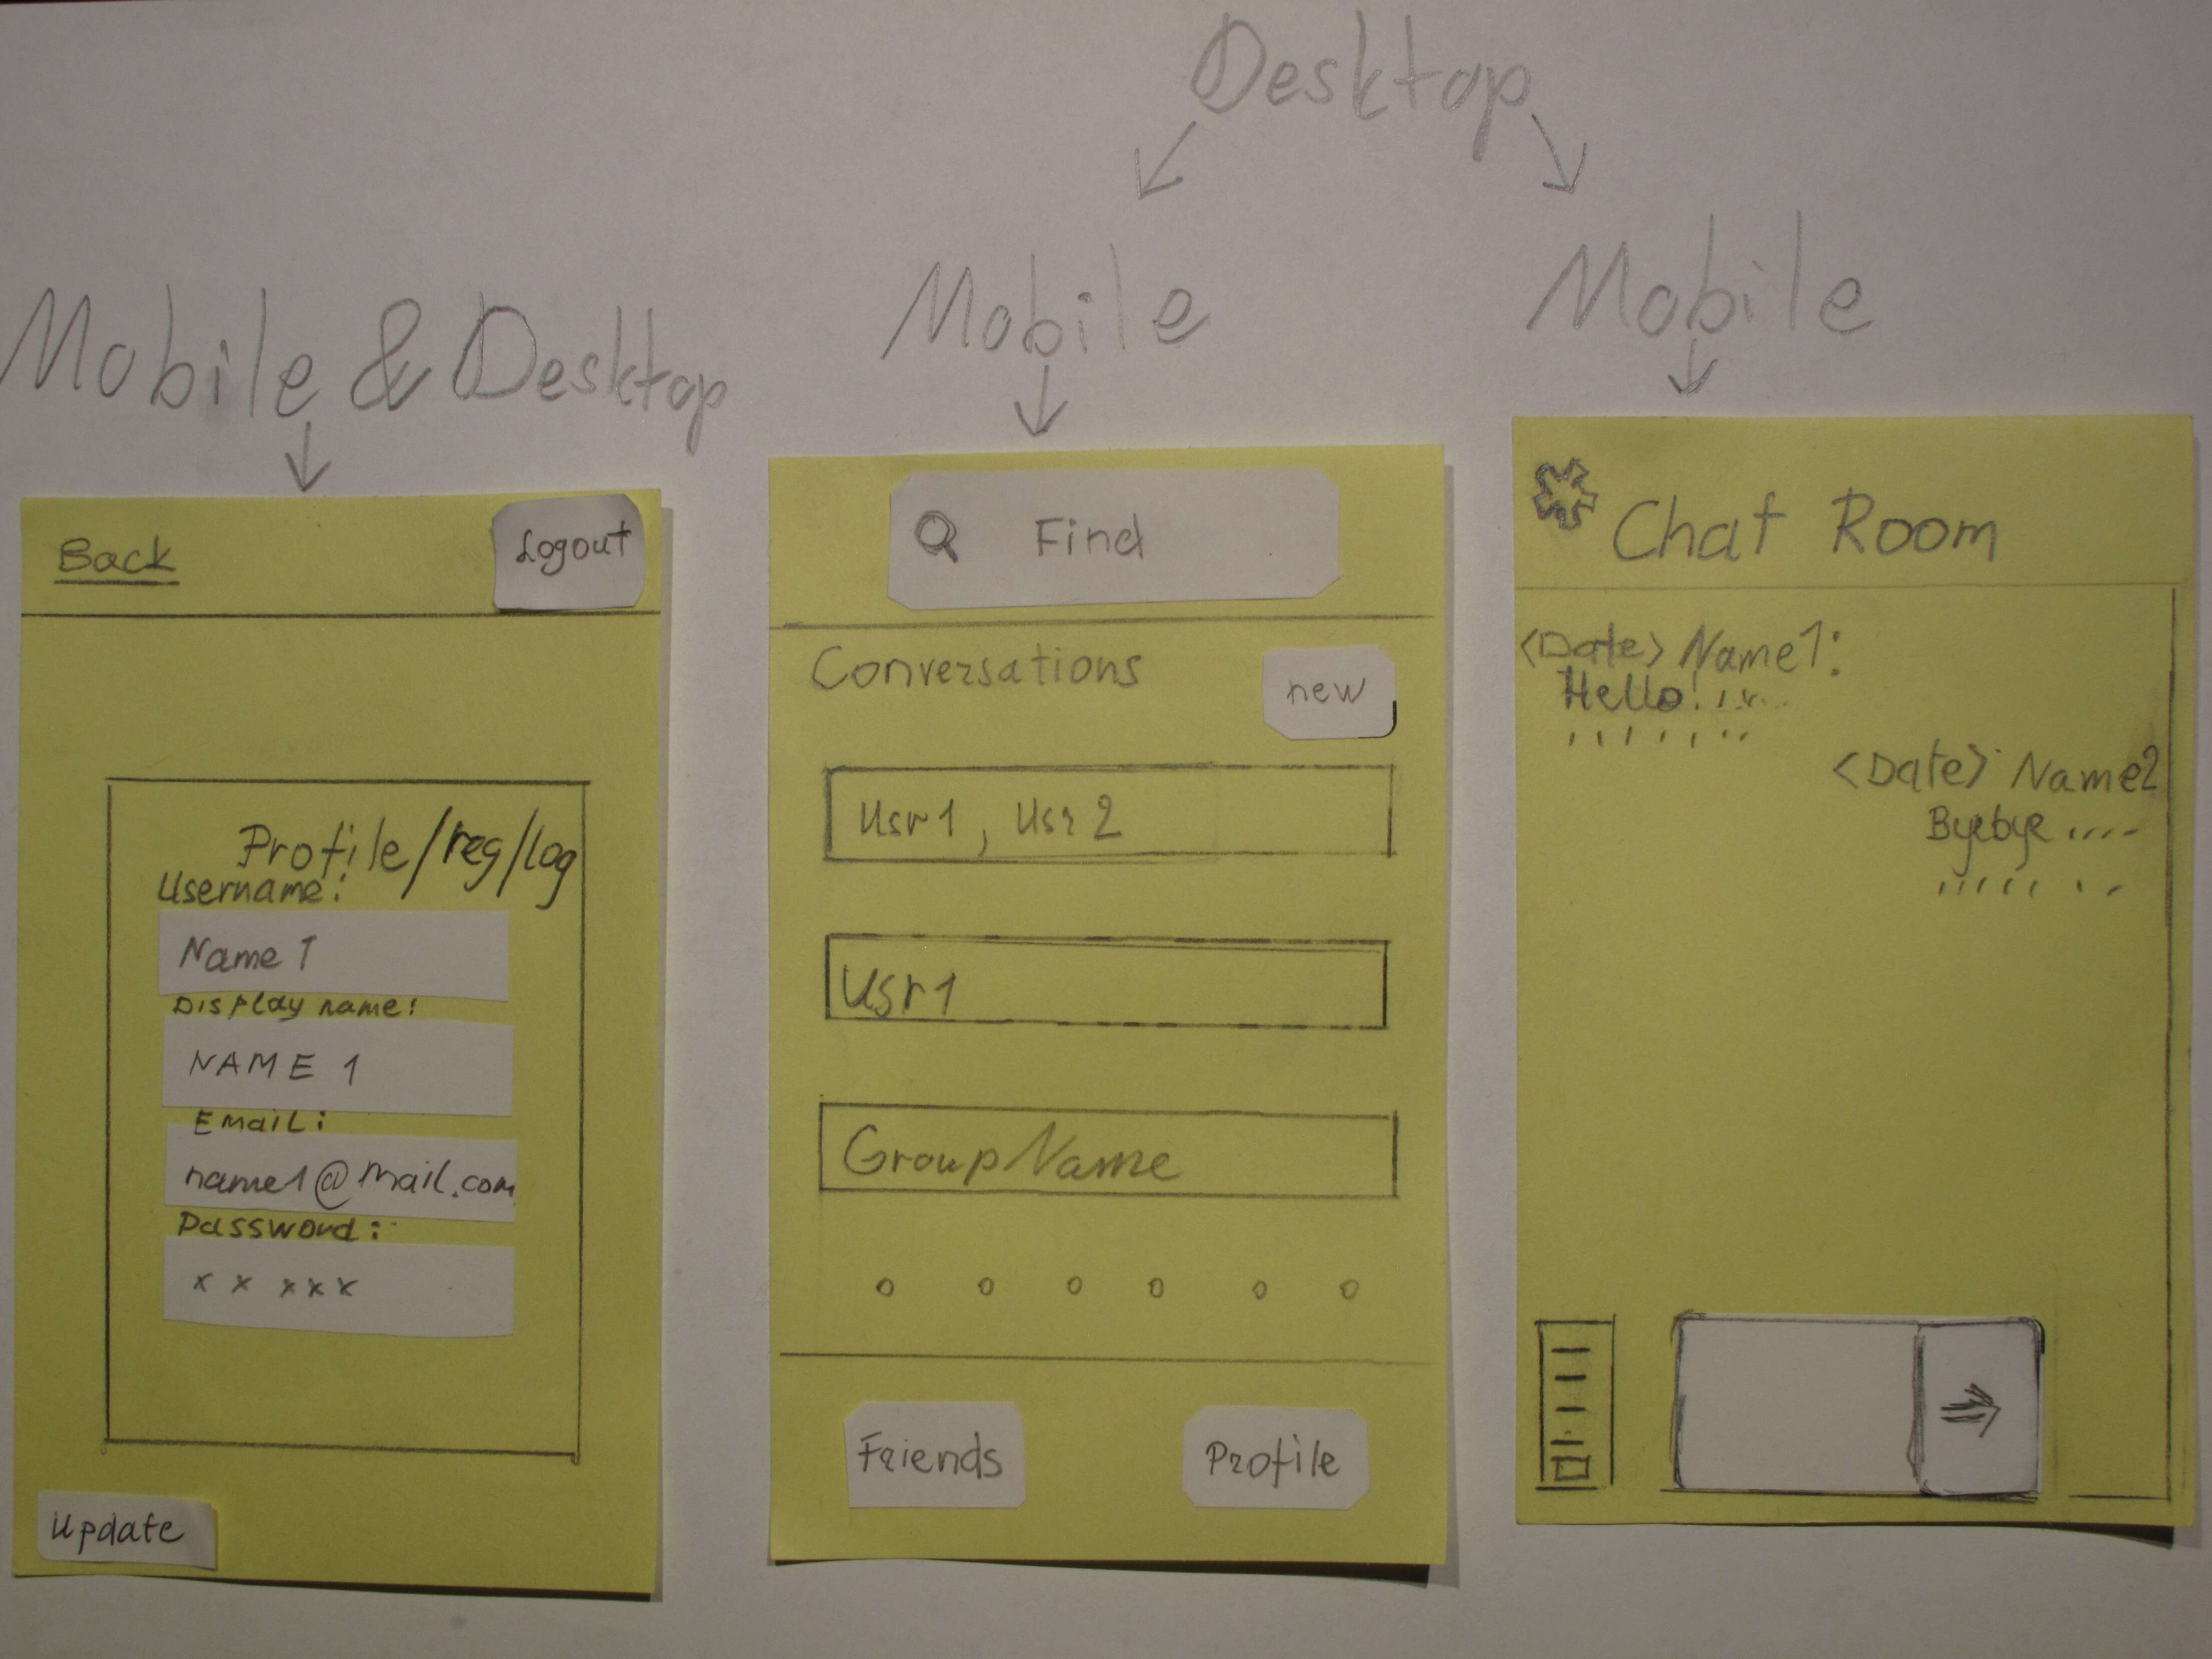 Desktop
Mobile & Desktop
Mobile
Mobile
Back
Logout
Profile/reg/log
Username:
Name 1
Display name:
NAME 1
Email:
name1@mail.com
Password:
x x x x x
Update
Find
Conversations
new
Usr1, Usr2
Usr1
GroupName
Friends
Profile
Chat Room
<Date> Name1:
Hello!
<Date> Name2
Byebye